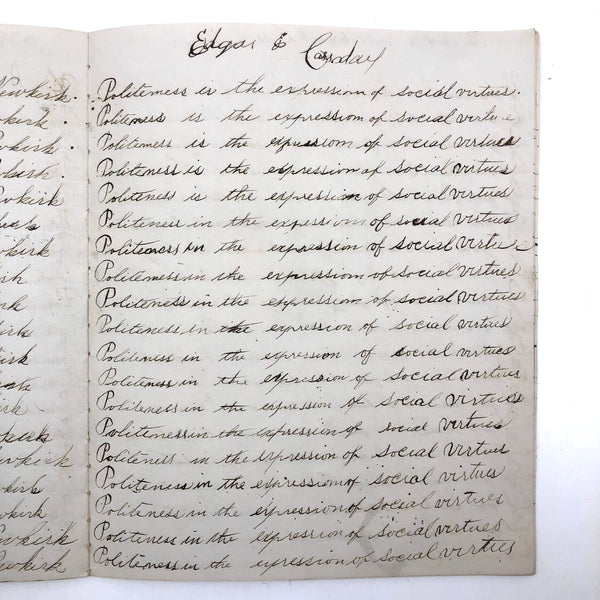 Newkirk.
Newkirk
Edgar E
Politeness is the expression of social virtues.
Politeness is the expression of social virtue
Politeness is the expression of social virtues
Politeness is the expression of social virtues
Politeness is the expression of social virtues
Politeness in the expression of social virtues
Politeness in the expression of social virtue
Politeness in the expression of social virtues
Politeness in the expression of social virtues
Politeness in the expression of social virtues
Politeness in the expression of social virtues
Politeness in the expression of social virtues
Politeness in the expression of social virtues
Politeness in the expression of social virtues
Politeness in the expression of social virtues
Politeness in the expression of social virtues
Politeness in the expression of social virtues
Politeness in the expression of social virtues
Politeness in the expression of social virtues